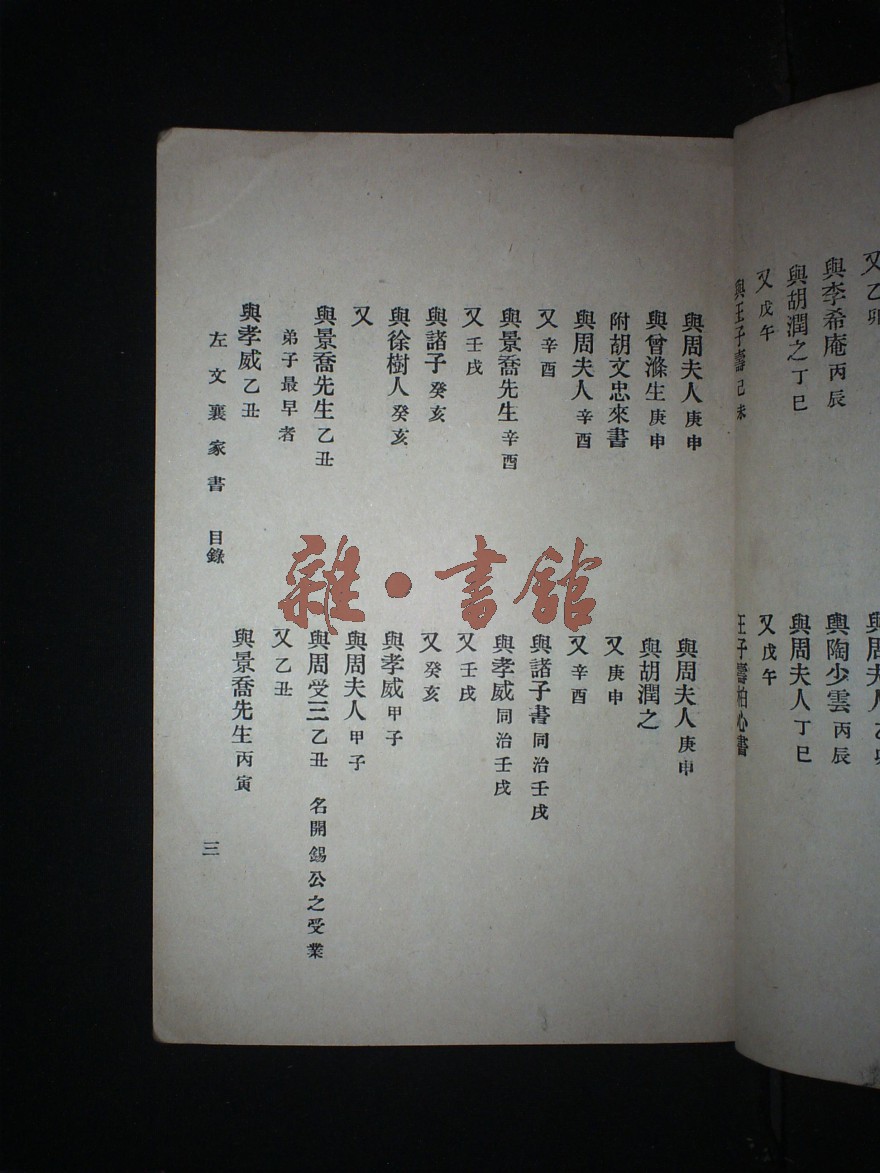 又乙卯 與周夫人乙卯
與李希庵丙辰 與陶少雲丙辰
與胡潤之丁巳 與周夫人丁巳
又戊午 又戊午
與王子壽己未 王子壽柏心書
與周夫人庚申 與周夫人庚申
與曾滌生庚申 與胡潤之
附胡文忠來書 又庚申
與周夫人辛酉 又辛酉
又辛酉 與諸子書同治壬戌
與景喬先生辛酉 與孝威同治壬戌
又壬戌 又壬戌
與諸子癸亥 又癸亥
與徐樹人癸亥 與孝威甲子
又 與周夫人甲子
與景喬先生乙丑 與周受三乙丑 名開錫公之受業
弟子最早者 又乙丑
與孝威乙丑 與景喬先生丙寅
左文襄家書 目錄 三
雜·書館